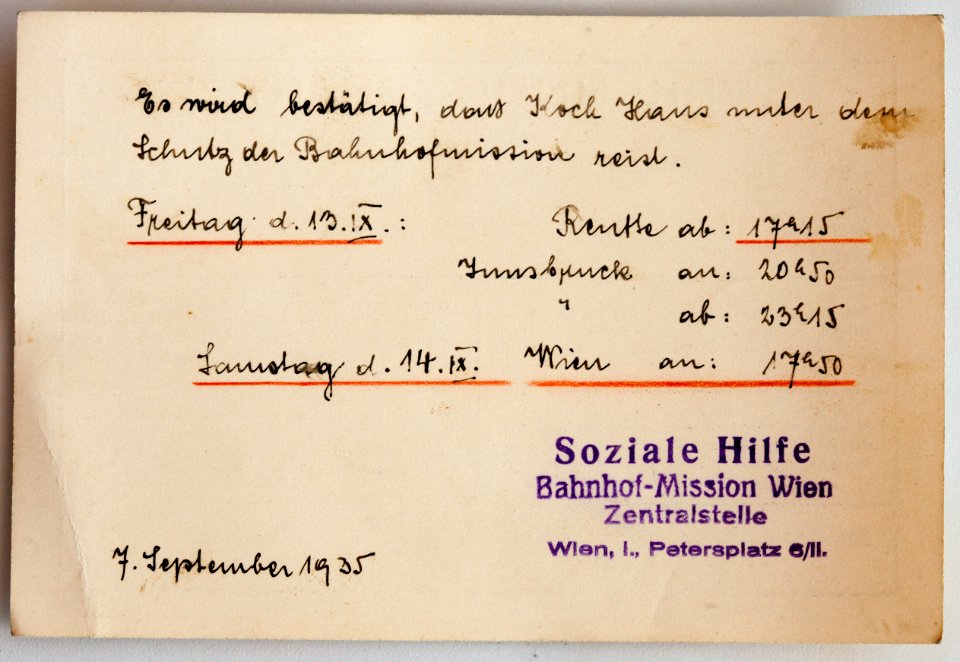 Es wird bestätigt, daß Koch Hans unter dem
Schutz der Bahnhofmission reist.
Freitag d. 13.IX.: Reutte ab: 17h15
Innsbruck an: 20h50
" ab: 23h15
Samstag d. 14.IX. Wien an: 17h50
Soziale Hilfe
Bahnhof-Mission Wien
Zentralstelle
Wien, I., Petersplatz 6/II.
7. September 1935